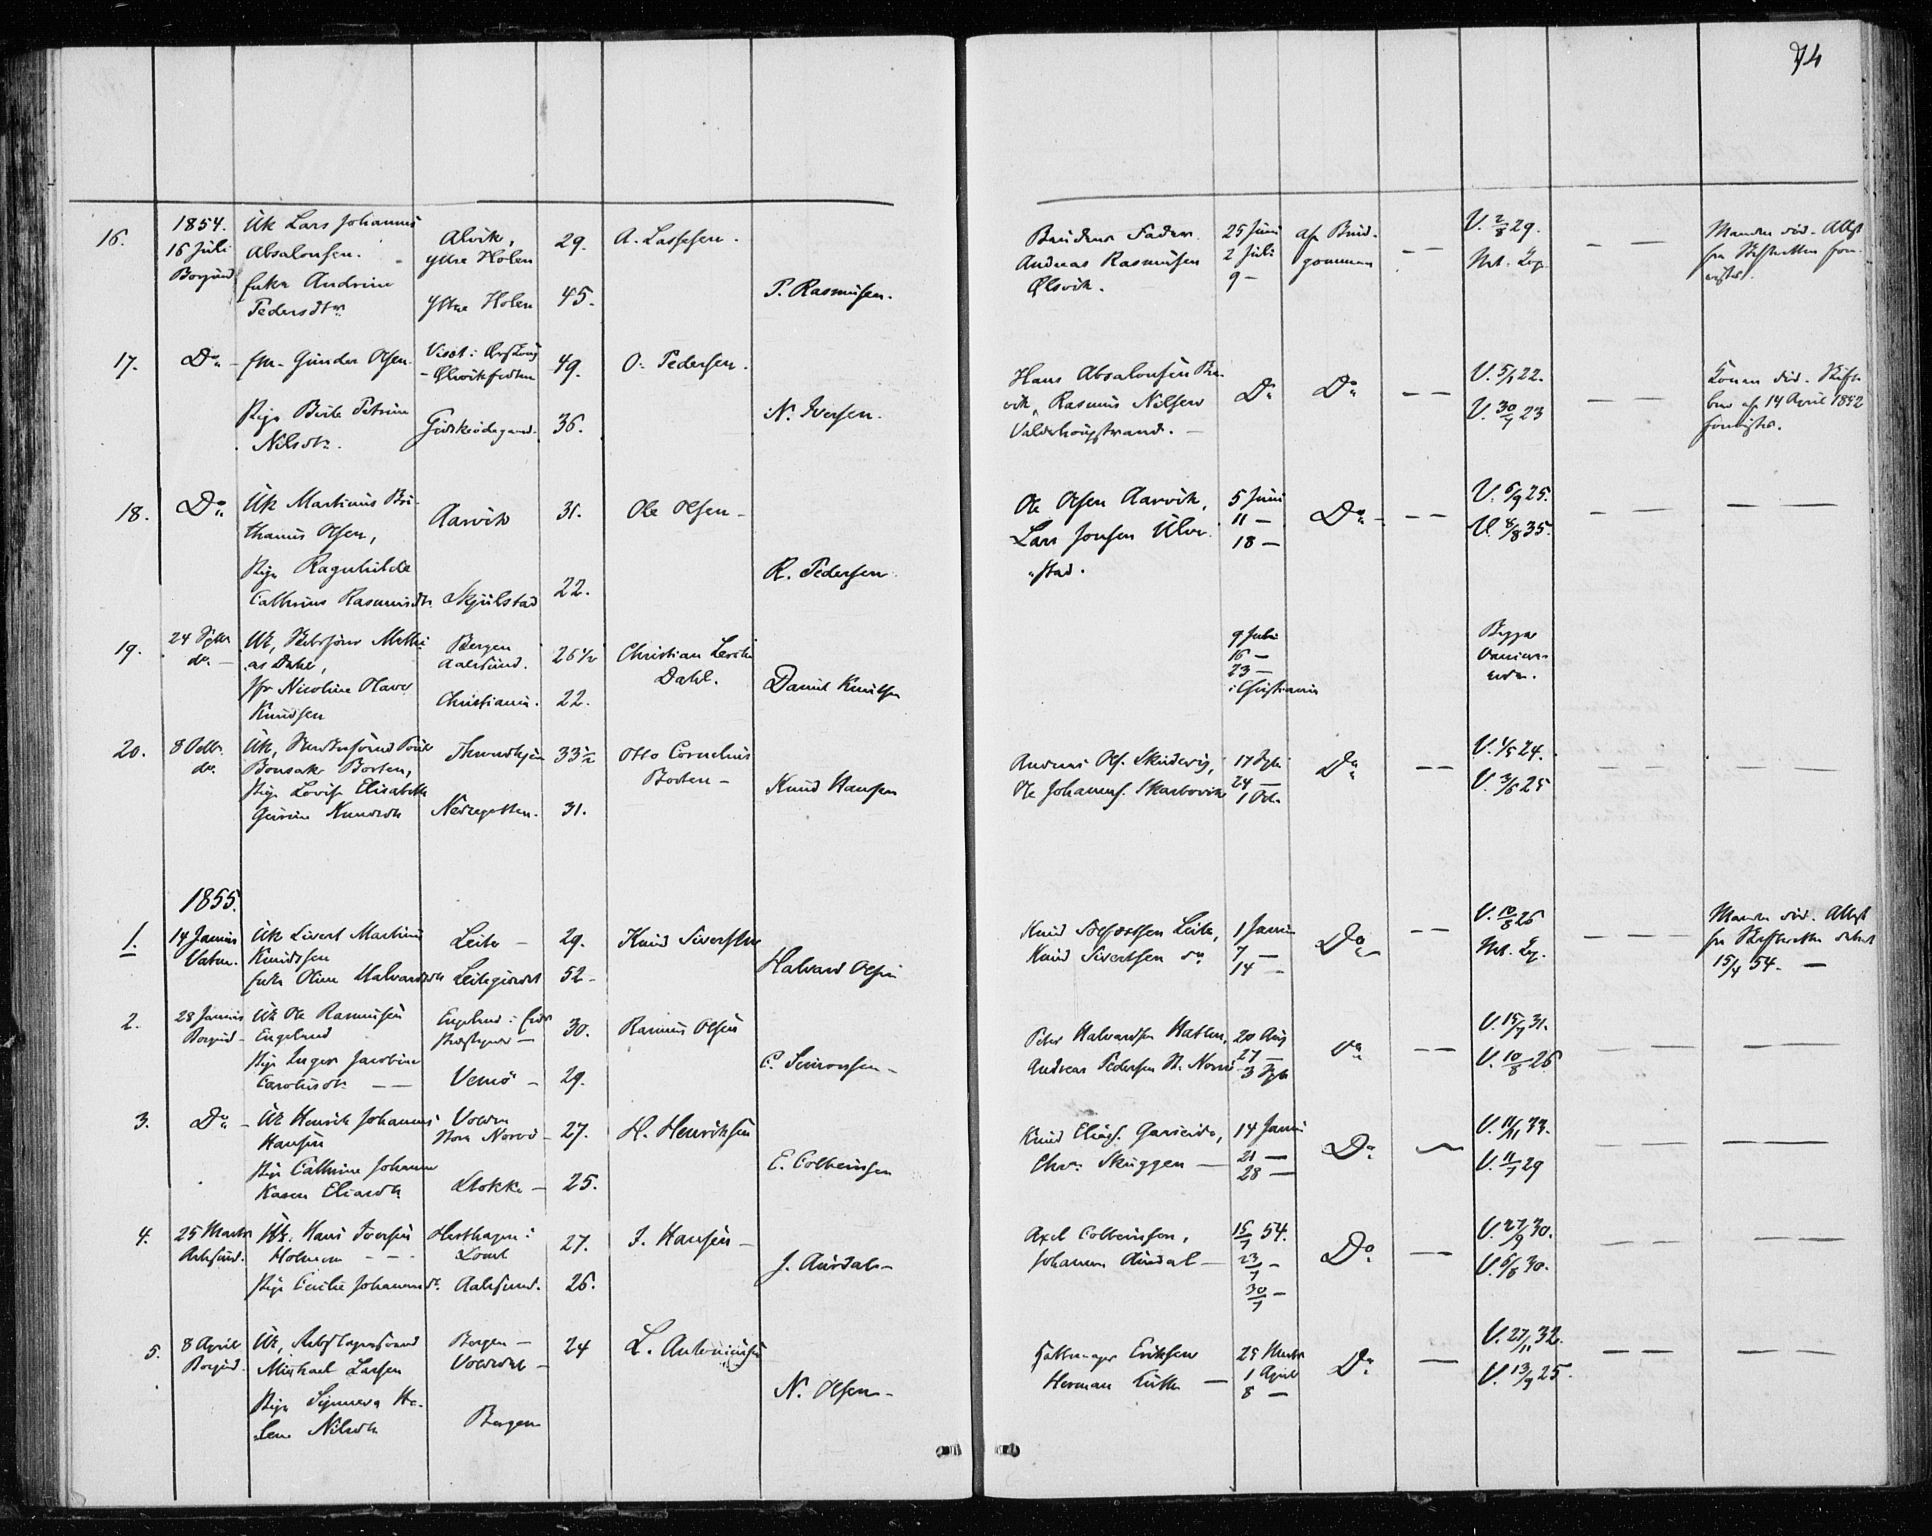 74
16.
1854.
16 Juli
Borgund
Uk Lars Johannes
Absalonsen.
Enke Andrine
Pedersdtr
Alvik,
ytre Holen
Ytre Holen
29.
45.
A. Lassesen.
P. Rasmusen.
Brudens Fader
Andreas Rasmusen
Ølsvik.
25 Juni
2 Juli
9 —
af Brud-
gommen
— —
V. 2/8 29.
Nat. Kop.
— —
Manden død. Attest
fra Skifteretten fore-
vist.
17.
Do —
Em. Gunder Olsen
Pige Berte Petrine
Nilsdtr.
49.
36.
O. Pedersen.
N. Iversen.
Hans Absalonsen
Rasmus Nilsen
Valderhaugstrand. —
Do
Do
— —
V. 5/1 22.
V. 30/9 23
— —
Konen død. Skifte
brev af 14 April 1852
forevist.
18.
Do
Uk Martinus
Olsen,
Pige Ragnhilde
Cathrine Rasmusdtr
Aarvik
Skjulstad
31.
22.
Ole Olsen —
R. Pedersen
Ole Olsen Aarvik,
Lars Jonsen Ulve-
stad.
5 Juni
11 —
18 —
Do —
— —
V. 6/9 25.
V. 8/8 35.
— —
— —
19.
24 Septbr
do. —
Uk, Mathi-
as Dahl,
Nicoline Olave
Knudsen
Bergen
Aalesund.
Christiania.
26 1/2
22.
Christian
Dahl.
Daniel Knudsen
9 Juli
16 —
23 —
i Christiania
Begge
vaccine-
rede.
20.
8 Octbr.
do.
Uk,
Borten,
Pige Lovise Elisabeth
Knudsdtr
Trondhjem
33 1/2
31.
Otto Cornelius
Borten —
Knud Hansen
Andreas Ols.
Ole Johannes. Skarbøvik
17 Septbr
24 —
1 Oct.
Do
— —
V. 1/5 24.
V. 3/6 25
— —
— —
1855.
1.
14 Januar
Vatne.
Uk Sivert Martinus
Knudsen
Enke Oline Halvardsdtr
Leite —
Leitegjerdet
29.
52 —
Knud Sivertsen
Halvard Olsen
Knud Leite,
Knud Sivertsen do
1 Januar
7 —
14 —
Do —
— —
V. 10/8 26
Nat. Kop.
— — —
Manden død. Attest
fra Skifteretten dateret
15/4 54. —
2.
28 Januar
Borgund —
Uk Ole Rasmusen
Engeland
Pige Inger Jacobine
Carolusdtr — —
Engeland i
Vemø —
30.
29.
Rasmus Olsen
C. Simonsen —
Peter Halvardsen Hatlen,
Andreas Pedersen St. Norvd
20 Aug
27 —
3 Septbr
Do
— —
V. 15/7 31.
V. 10/8 26
— —
— —
3.
Do —
Uk Henrik Johannes
Hansen
Pige Cathrine Johanne
Karen Eliasdtr
Volden
Store Norvd —
Slokke —
27.
25.
H. Henriksen
E. Colbeinsen
Knud Elias. Gaaseide,
Chr. Skuggen —
14 Januar
21 —
28 —
Do
—
V. 11/11 33.
V. 11/7 29
— —
— —
4.
25 Marts
Aalesund.
Uk. Hans Iversen
Holmen — —
Pige Cecilie Johannesdtr.
Hesthagen i
Aalesund.
27.
26.
I. Hansen —
J. Aursdal —
Axel Colbeinsen,
Johannes Aursdal —
15/7 54.
23/7 —
30/7 —
Do
— —
V. 27/9 30.
V. 6/8 30.
— —
— —
5.
8 April
Borgund.
Uk,
Michael Larsen
Pige Synneva He-
lene Nilsdtr
Bergen —
Voldsdal —
Bergen
24
L. Antoniusen
N. Olsen —
Eriksen
Herman —
25 Marts
1 April
8 —
Do
—
V. 27/11 32.
V. 13/9 25.
— —
— —